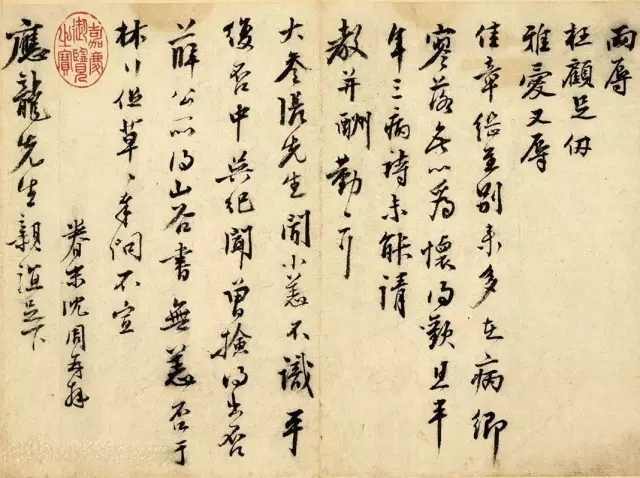 雨辱
枉顧足仞
雅愛又辱
佳章継至別来多在病鄉
寥落無以爲懷得歡且半
年三病詩未能請
教并酬勤〻耳
大参張先生聞小恙不識平
復否中吳紀聞曾撿得出否
薛公所得山谷書無恙否于
林〻但草〻奉問不宣
眷末沈周再拜
應龍先生親誼足下
嘉慶御覽之寶